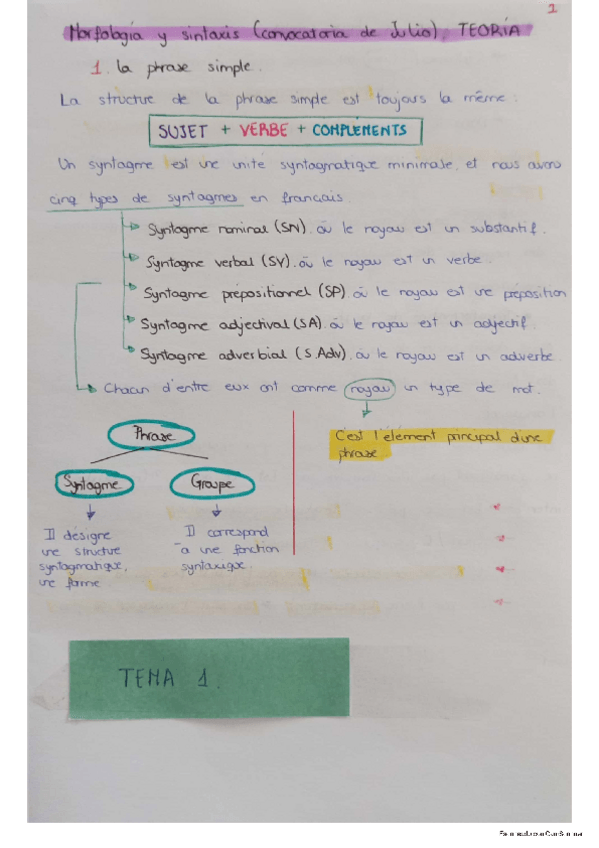 1
Morfología y sintaxis (convocatoria de Julio). TEORÍA
1. La phrase simple.
La structure de la phrase simple est toujours la même:
SUJET + VERBE + COMPLÉMENTS
Un syntagme est une unité syntagmatique minimale, et nous avons
cinq types de syntagmes en français.
Syntagme nominal (SN). où le noyau est un substantif.
Syntagme verbal (SV). où le noyau est un verbe.
Syntagme prépositionnel (SP). où le noyau est une préposition
Syntagme adjectival (SA). où le noyau est un adjectif.
Syntagme adverbial (S.Adv). où le noyau est un adverbe
Chacun d'entre eux ont comme noyau un type de mot.
Phrase
C'est l'élément principal d'une
phrase.
Syntagme
Groupe
Il désigne
une structure
syntagmatique,
une forme.
Il correspond
à une fonction
syntaxique.
TEMA 1.